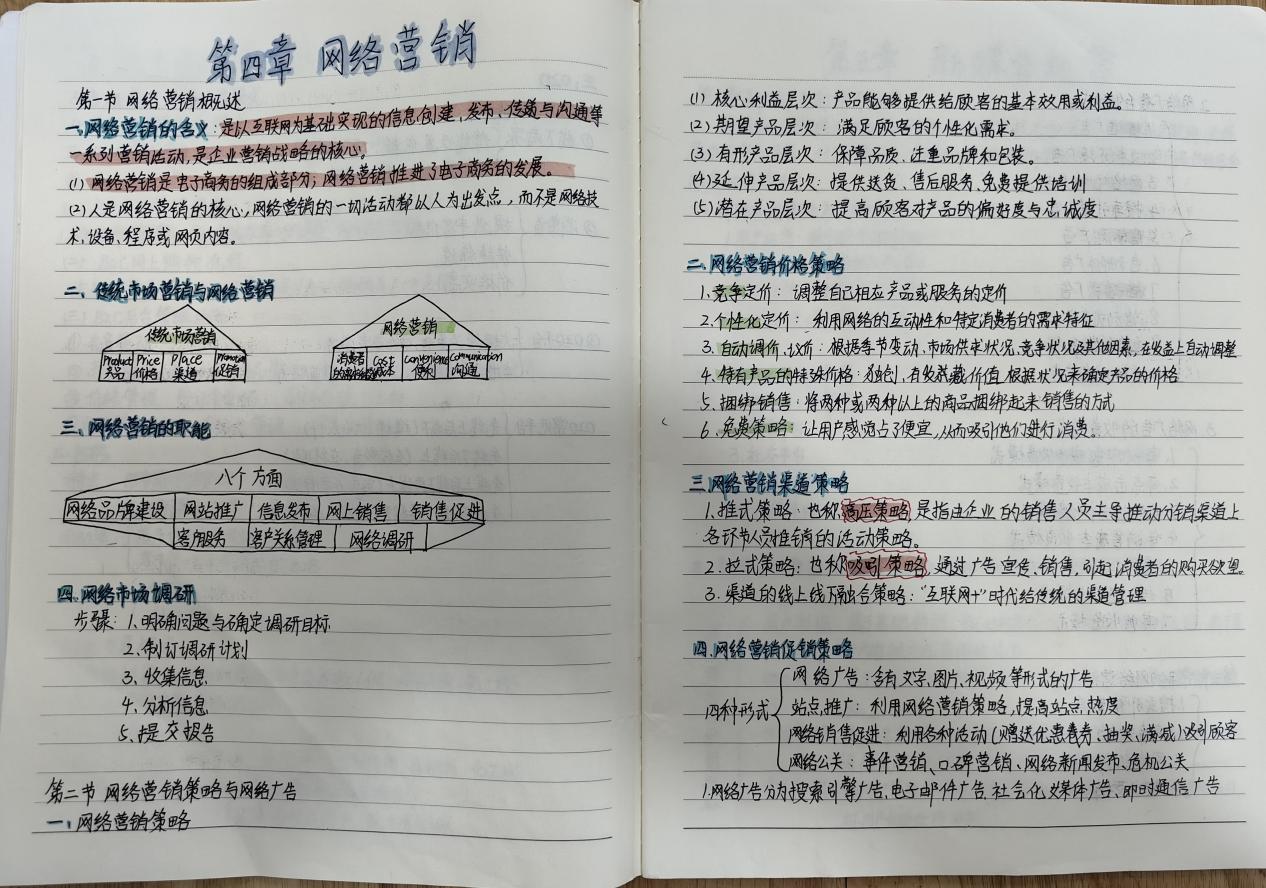 第四章 网络营销
第一节 网络营销概述
一、网络营销的含义：是以互联网为基础实现的信息创建，发布、传递与沟通等
一系列营销活动，是企业营销战略的核心。
(1) 网络营销是电子商务的组成部分；网络营销推进了电子商务的发展。
(2) 人是网络营销的核心，网络营销的一切活动都以人为出发点，而不是网络技
术、设备、程序或网页内容。
二、传统市场营销与网络营销
传统市场营销
Product 产品 Price 价格 Place 渠道 Promotion 促销
网络营销
消费者 Cost 成本 Convenience 便利 Communication 沟通
三、网络营销的职能
八个方面
网络品牌建设 网站推广 信息发布 网上销售 销售促进
客户服务 客户关系管理 网络调研
四、网络市场调研
步骤：1.明确问题与确定调研目标
2.制订调研计划
3、收集信息
4、分析信息
5、提交报告
第二节 网络营销策略与网络广告
一、网络营销策略
(1) 核心利益层次：产品能够提供给顾客的基本效用或利益。
(2) 期望产品层次：满足顾客的个性化需求。
(3) 有形产品层次：保障品质、注重品牌和包装。
(4) 延伸产品层次：提供送货、售后服务、免费提供培训
(5) 潜在产品层次：提高顾客对产品的偏好度与忠诚度
二、网络营销价格策略
1.竞争定价：调整自己相应产品或服务的定价
2.个性化定价：利用网络的互动性和特定消费者的需求特征
3.自动调价、议价：根据季节变动、市场供求状况、竞争状况及其他因素，在收益上自动调整
4.特有产品的特殊价格：独创、有收藏价值，根据状况来确定产品的价格
5.捆绑销售：将两种或两种以上的商品捆绑起来销售的方式
6.免费策略：让用户感觉占了便宜，从而吸引他们进行消费。
三、网络营销渠道策略
1.推式策略：也称高压策略，是指由企业的销售人员主导推动分销渠道上
各环节人员推销的活动策略。
2.拉式策略：也称吸引策略，通过广告宣传、销售，引起消费者的购买欲望。
3.渠道的线上线下融合策略：“互联网+”时代给传统的渠道管理
四、网络营销促销策略
四种形式
网络广告：含有文字、图片、视频等形式的广告
站点推广：利用网络营销策略，提高站点热度
网络销售促进：利用各种活动（赠送优惠券、抽奖、满减）吸引顾客
网络公关：事件营销、口碑营销、网络新闻发布、危机公关
1.网络广告分为搜索引擎广告、电子邮件广告、社会化媒体广告、即时通信广告